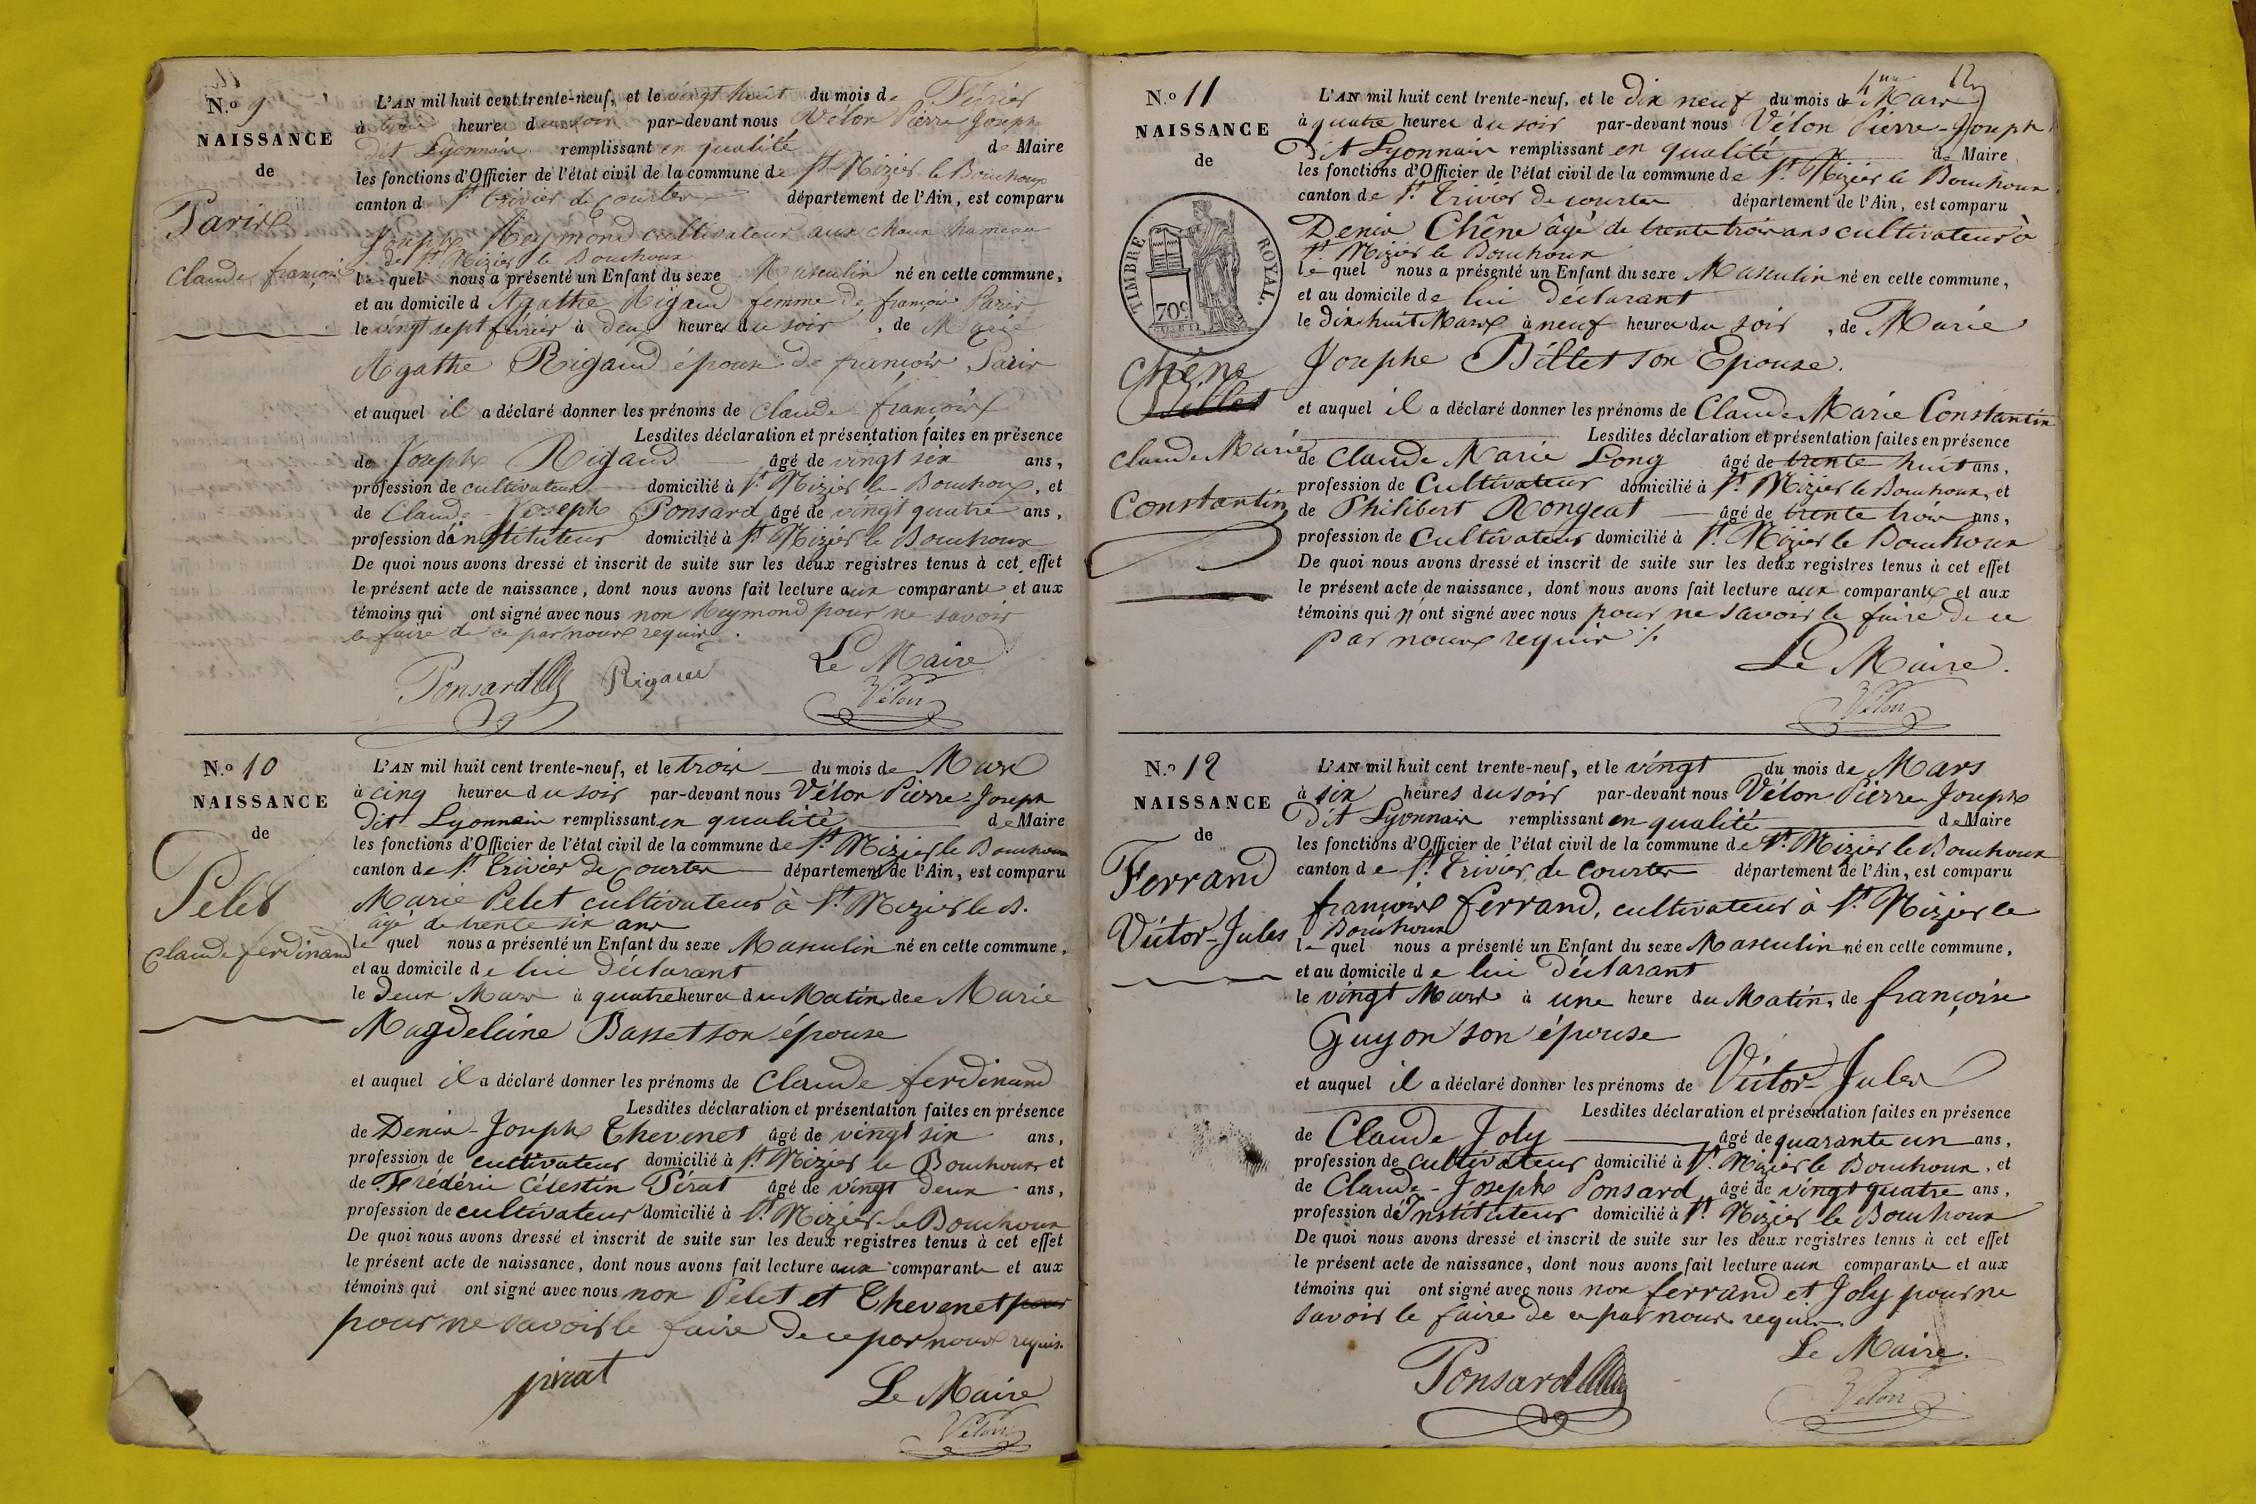 N.º 9
NAISSANCE
de
Paris
Claude françois
L'AN mil huit cent trente-neuf, et le vingt huit du mois de Février
à trois heures du soir par-devant nous Vélon Pierre Joseph
dit Lyonnais remplissant en qualité de Maire
les fonctions d'Officier de l'état civil de la commune de St. Nizier le Bouchoux
canton de St. Trivier de courtes département de l'Ain, est comparu
Joseph Reymond cultivateur aux chaux hameau
de St. Nizier le Bouchoux
lequel nous a présenté un Enfant du sexe Masculin né en cette commune,
et au domicile d'Agathe Rigaud femme de françois Paris
le vingt sept février à deux heures du soir, de Marie
Agathe Rigaud épouse de françois Paris
et auquel il a déclaré donner les prénoms de Claude françois
Lesdites déclaration et présentation faites en présence
de Joseph Rigaud âgé de vingt six ans,
profession de cultivateur domicilié à St. Nizier le Bouchoux, et
de Claude-Joseph Ponsard âgé de vingt quatre ans,
profession d'instituteur domicilié à St. Nizier le Bouchoux
De quoi nous avons dressé et inscrit de suite sur les deux registres tenus à cet effet
le présent acte de naissance, dont nous avons fait lecture aux comparants et aux
témoins qui ont signé avec nous non Reymond pour ne savoir
le faire de ce par nous requis.
Ponsard Rigaud Le Maire
Vélon
N.º 10
NAISSANCE
de
Pelet
Claude ferdinand
L'AN mil huit cent trente-neuf, et le trois du mois de Mars
à cinq heures du soir par-devant nous Vélon Pierre-Joseph
dit Lyonnais remplissant en qualité de Maire
les fonctions d'Officier de l'état civil de la commune de St. Nizier le Bouchoux
canton de St. Trivier de Courtes département de l'Ain, est comparu
Marie Pelet cultivateur à St. Nizier le B.
âgé de trente six ans
lequel nous a présenté un Enfant du sexe Masculin né en cette commune,
et au domicile de lui déclarant
le deux Mars à quatre heures du Matin, de Marie
Magdeleine Basset son épouse
et auquel il a déclaré donner les prénoms de Claude ferdinand
Lesdites déclaration et présentation faites en présence
de Denis-Joseph Thevenet âgé de vingt six ans,
profession de cultivateur domicilié à St. Nizier le Bouchoux et
de Frédéric Célestin Pirat âgé de vingt deux ans,
profession de cultivateur domicilié à St. Nizier le Bouchoux
De quoi nous avons dressé et inscrit de suite sur les deux registres tenus à cet effet
le présent acte de naissance, dont nous avons fait lecture aux comparants et aux
témoins qui ont signé avec nous non Pelet et Thevenet pour
pour ne savoir le faire de ce par nous requis.
pirat Le Maire
Vélon
12
N.º 11
NAISSANCE
de
TIMBRE ROYAL.
70c
Chêne
Billet
Claude Marie
Constantin
L'AN mil huit cent trente-neuf, et le dix neuf du mois de Mars
à quatre heures du soir par-devant nous Vélon Pierre-Joseph
Dit Lyonnais remplissant en qualité de Maire
les fonctions d'Officier de l'état civil de la commune de St. Nizier le Bouchoux
canton de St. Trivier de courtes département de l'Ain, est comparu
Denis Chêne âgé de trente trois ans cultivateur à
St. Nizier le Bouchoux
lequel nous a présenté un Enfant du sexe Masculin né en cette commune,
et au domicile de lui déclarant
le dix huit Mars à neuf heures du soir, de Marie
Josephe Billet son Epouse.
et auquel il a déclaré donner les prénoms de Claude Marie Constantin
Lesdites déclaration et présentation faites en présence
de Claude Marie Long âgé de trente huit ans,
profession de Cultivateur domicilié à St. Nizier le Bouchoux, et
de Philibert Rongeat âgé de trente trois ans,
profession de Cultivateur domicilié à St. Nizier le Bouchoux
De quoi nous avons dressé et inscrit de suite sur les deux registres tenus à cet effet
le présent acte de naissance, dont nous avons fait lecture aux comparants et aux
témoins qui n'ont signé avec nous pour ne savoir le faire de ce
par nous requis ./.
Le Maire.
Vélon
N.º 12
NAISSANCE
de
Ferrand
Victor-Jules
L'AN mil huit cent trente-neuf, et le vingt du mois de Mars
à six heures du soir par-devant nous Vélon Pierre Joseph
Dit Lyonnais remplissant en qualité de Maire
les fonctions d'Officier de l'état civil de la commune de St. Nizier le Bouchoux
canton de St. Trivier de Courtes département de l'Ain, est comparu
françois ferrand, cultivateur à St. Nizier le
Bouchoux
lequel nous a présenté un Enfant du sexe Masculin né en cette commune,
et au domicile de lui déclarant
le vingt Mars à une heure du Matin, de françoise
Guyon son épouse
et auquel il a déclaré donner les prénoms de Victor-Jules
Lesdites déclaration et présentation faites en présence
de Claude Joly âgé de quarante un ans,
profession de cultivateur domicilié à St. Nizier le Bouchoux, et
de Claude-Joseph Ponsard âgé de vingt quatre ans,
profession d'Instituteur domicilié à St. Nizier le Bouchoux
De quoi nous avons dressé et inscrit de suite sur les deux registres tenus à cet effet
le présent acte de naissance, dont nous avons fait lecture aux comparants et aux
témoins qui ont signé avec nous non ferrand et Joly pour ne
savoir le faire de ce par nous requis.
Le Maire.
Ponsard Vélon